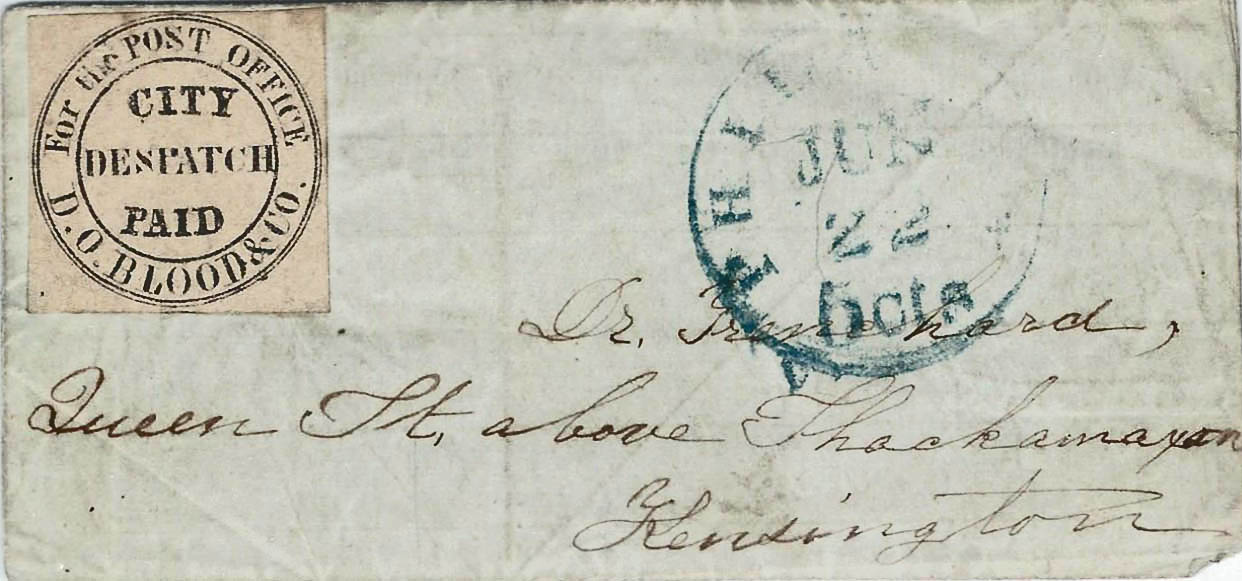 For the POST OFFICE
CITY
DESPATCH
PAID
D.O. BLOOD & CO.
JUN
22
5cts
Dr.
Queen St. above Thackamaxon
Kensington